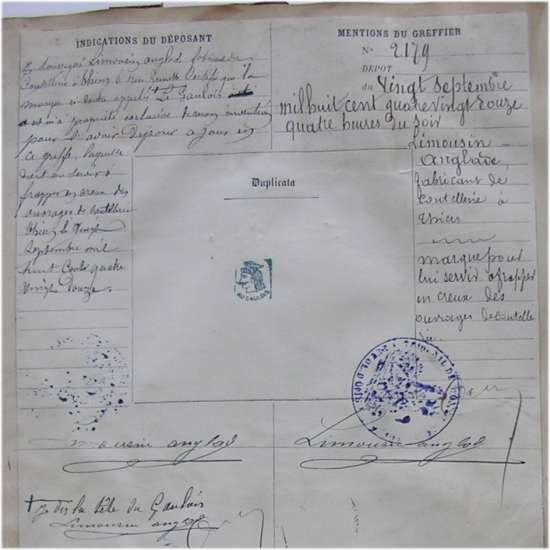 INDICATIONS DU DÉPOSANT
Limousin anglad
coutellerie à thiers 6 Rue certifie que la
marque ci appelé "Le Gaulois
est ma propriété exclusive
pour l'avoir Déposer a Jour
ce greffe, laquelle
doit me servir a
frapper en creux des
ouvrages de coutellerie
thiers le Vingt
Septembre mil
huit Cents quatre
Vingt Douze.
MENTIONS DU GREFFIER
N° 2179
DÉPOT
du Vingt Septembre
mil huit cent quatre vingt Douze
quatre heures du soir
Limousin
Anglade,
fabricant de
coutellerie à
Thiers
marque pour
lui servir a frapper
en creux des
ouvrages de coutelle
rie
Duplicata
AU GAULOIS
Limousin anglad
Limousin anglad
+ Je dis la tête du Gaulois
Limousin anglad